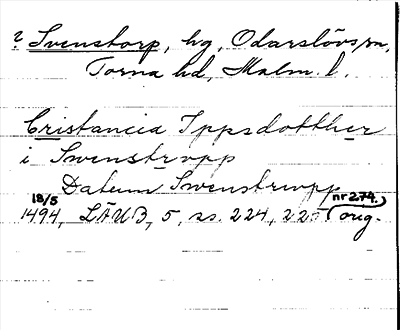 ? Svenstorp, hg, Odarslövs sn,
Torna hd, Malm. l.
Cristancia Ippsdotther
i Swenstropp
Datum Swenstrwpp
18/5 nr 274.
1494, LÄUB, 5, ss. 224, 225 (orig.